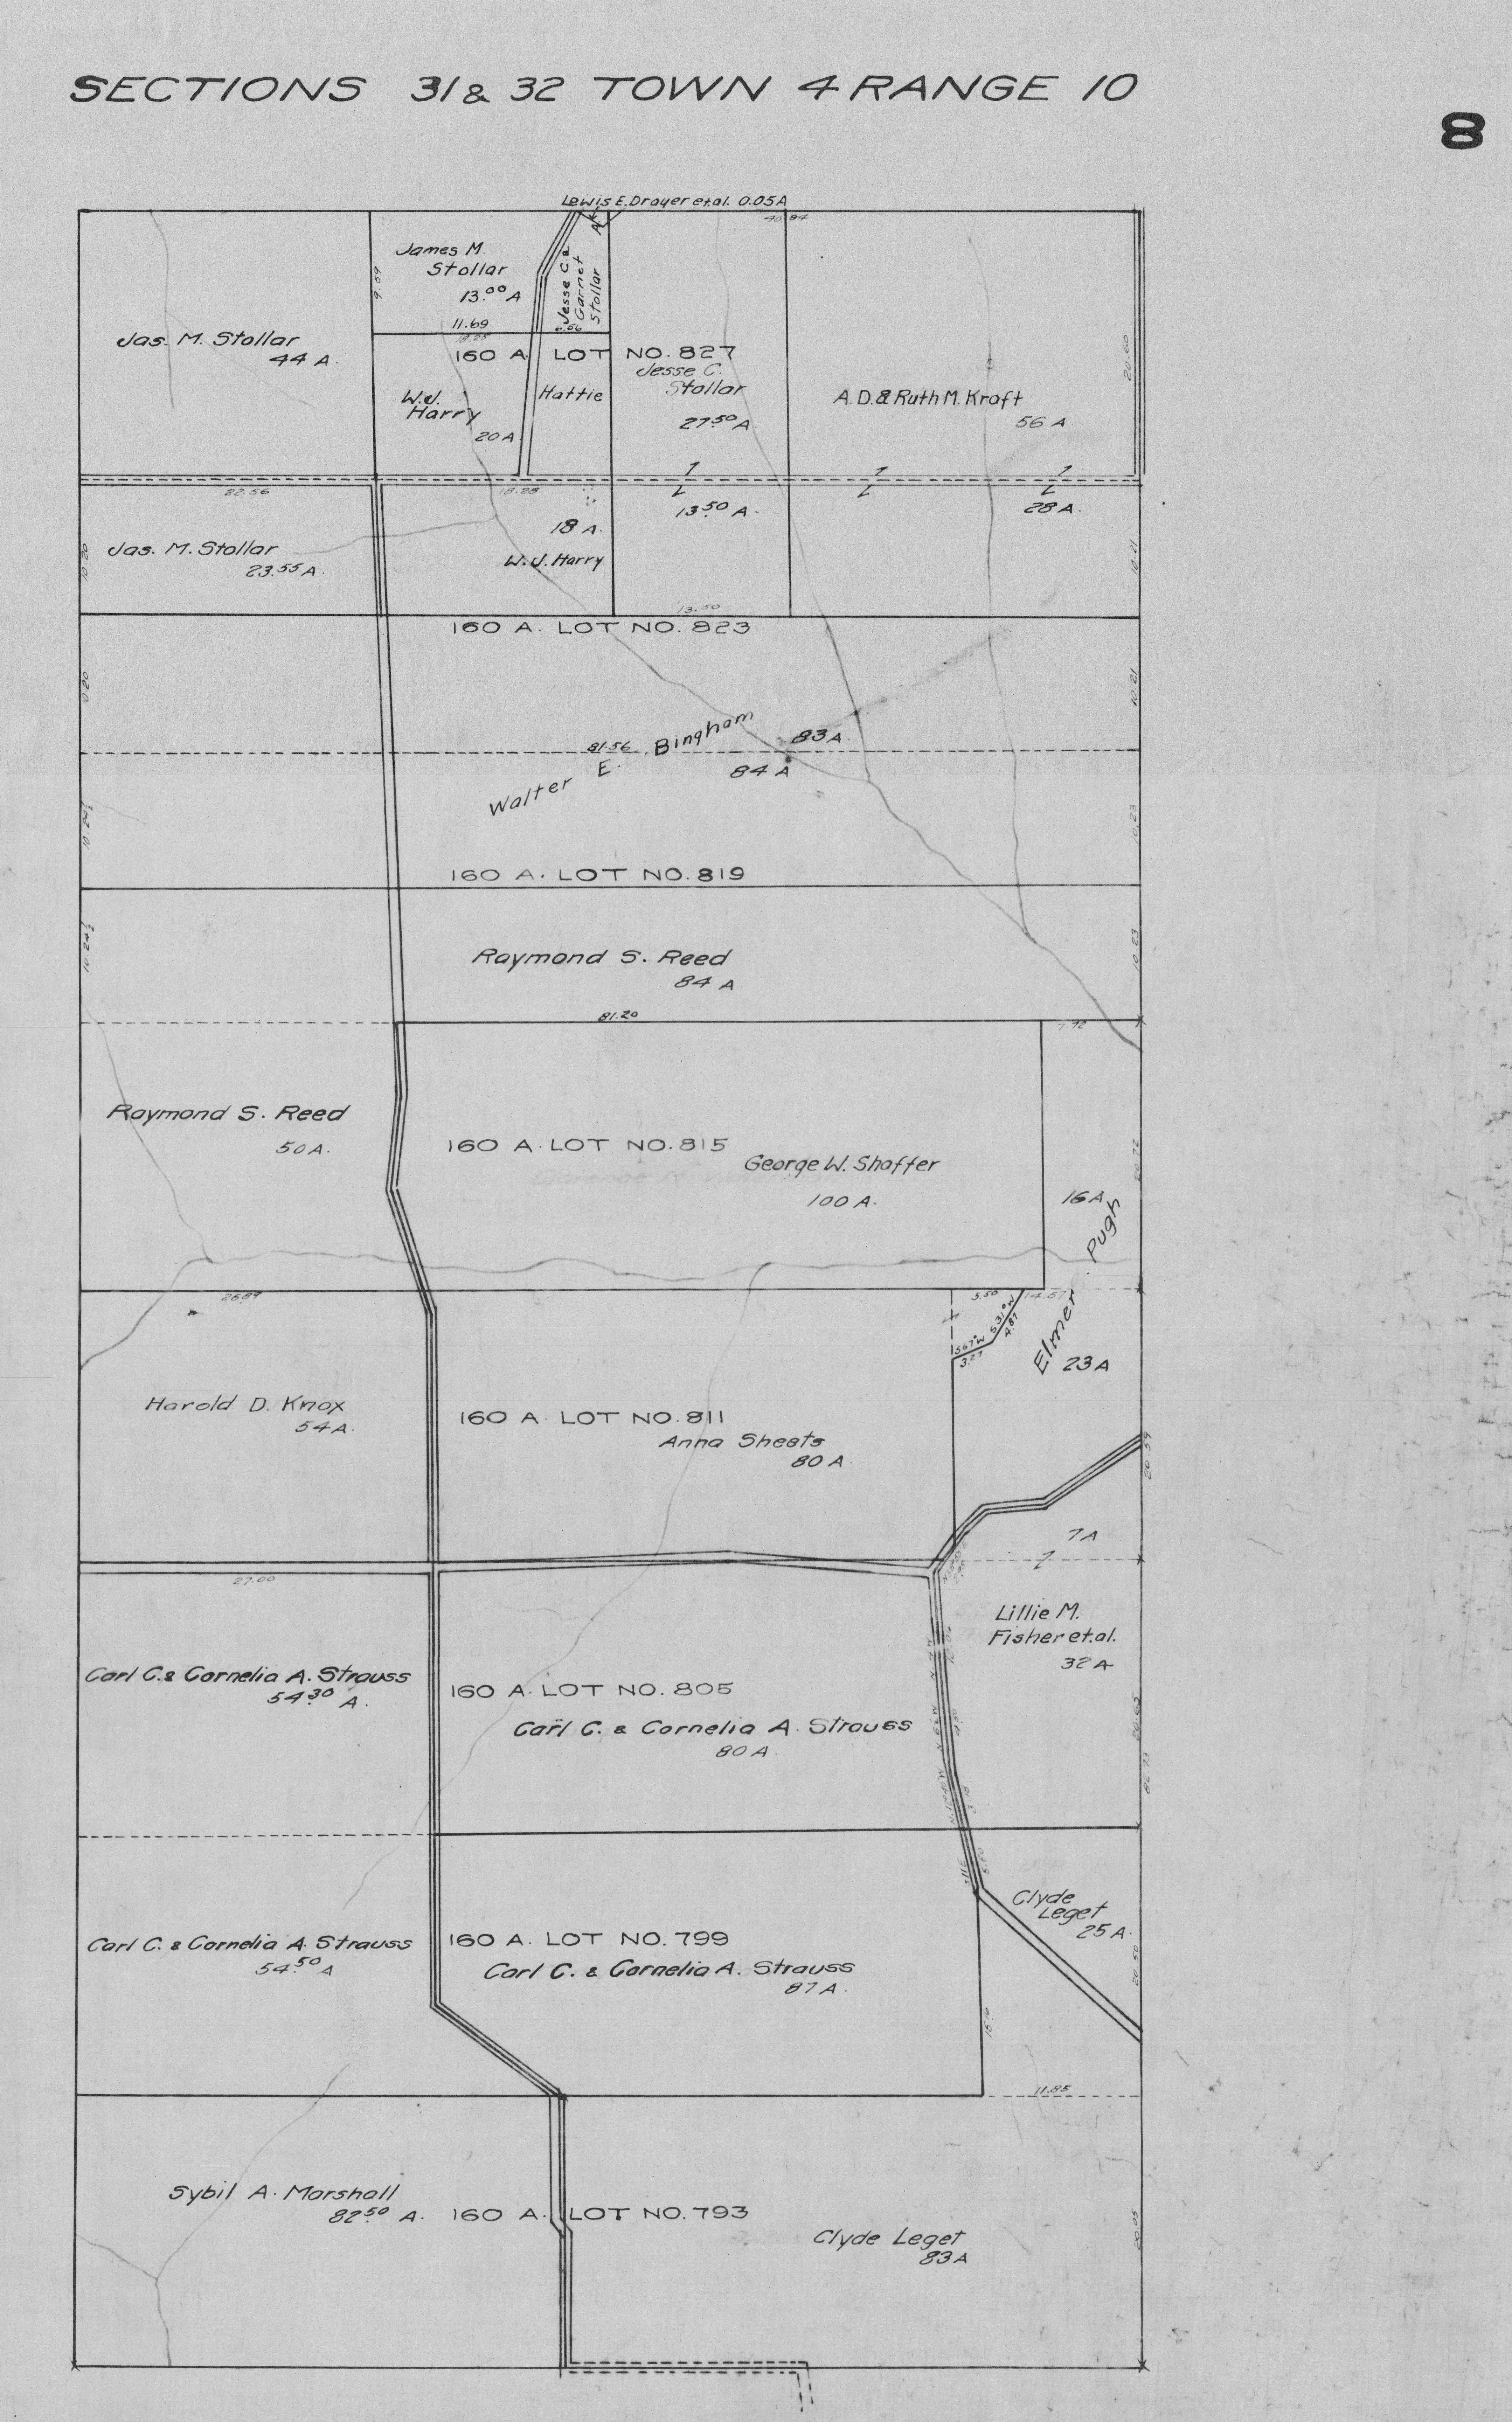 SECTIONS 31 & 32 TOWN 4 RANGE 10
8
Lewis E. Drayer et al. 0.05A
40.84
James M.
Stollar
13.00 A
11.69
9.59
Jesse C. &
Garnet
Stollar
6.56
Jas. M. Stollar
44 A.
160 A. LOT NO. 827
Jesse C.
Stollar
27.50 A.
W.J.
Harry
20 A.
Hattie
A.D. & Ruth M. Kraft
56 A
20.60
22.56
18.28
13.50 A.
28 A.
18 A.
W.J. Harry
Jas. M. Stollar
23.55 A.
10.21
13.50
160 A. LOT NO. 823
10.21
Walter E. Bingham
81.56
83 A.
84 A
10.23
160 A. LOT NO. 819
Raymond S. Reed
84 A
10.23
81.20
7.92
Raymond S. Reed
50 A.
160 A. LOT NO. 815
George W. Shaffer
100 A.
16 A.
20.72
Elmer Pugh
26.89
5.50
14.57
S31°W
4.87
S67°W
3.27
23 A
Harold D. Knox
54 A.
160 A. LOT NO. 811
Anna Sheets
80 A.
20.59
7 A
27.00
Lillie M.
Fisher et.al.
32 A
Carl C. & Cornelia A. Strauss
54.30 A.
160 A. LOT NO. 805
Carl C. & Cornelia A. Strauss
80 A.
20.65
82.73
Clyde
Leget
25 A.
Carl C. & Cornelia A. Strauss
54.50 A
160 A. LOT NO. 799
Carl C. & Cornelia A. Strauss
87 A.
20.50
11.85
Sybil A. Marshall
82.50 A.
160 A. LOT NO. 793
Clyde Leget
83 A
20.05